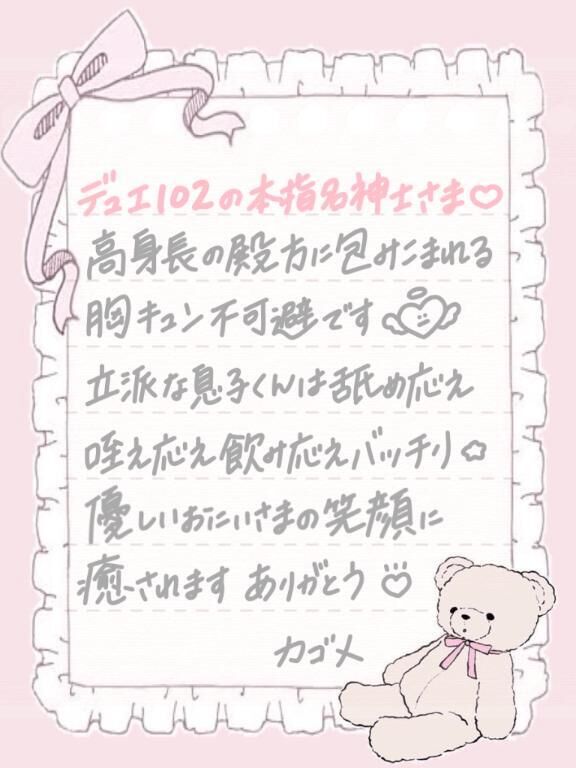 デュエ102の本指名紳士さま♡
高身長の殿方に包みこまれる
胸キュン不可避です
立派な息子くんは舐め応え
咥え応え飲み応えバッチリ☆
優しいおにいさまの笑顔に
癒されます ありがとう
カゴメ